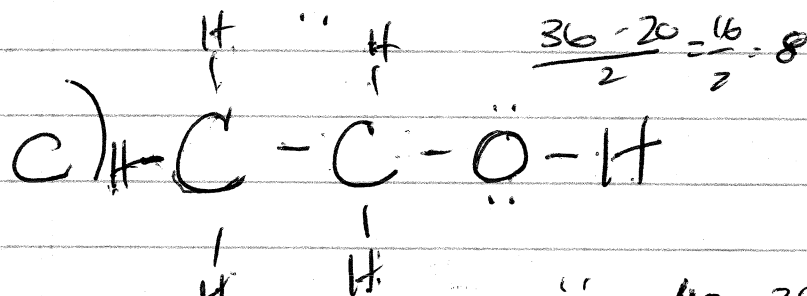 H ·· H 36 - 20 = 16 = 8
2 2
C) H - C - C - Ö - H
H H